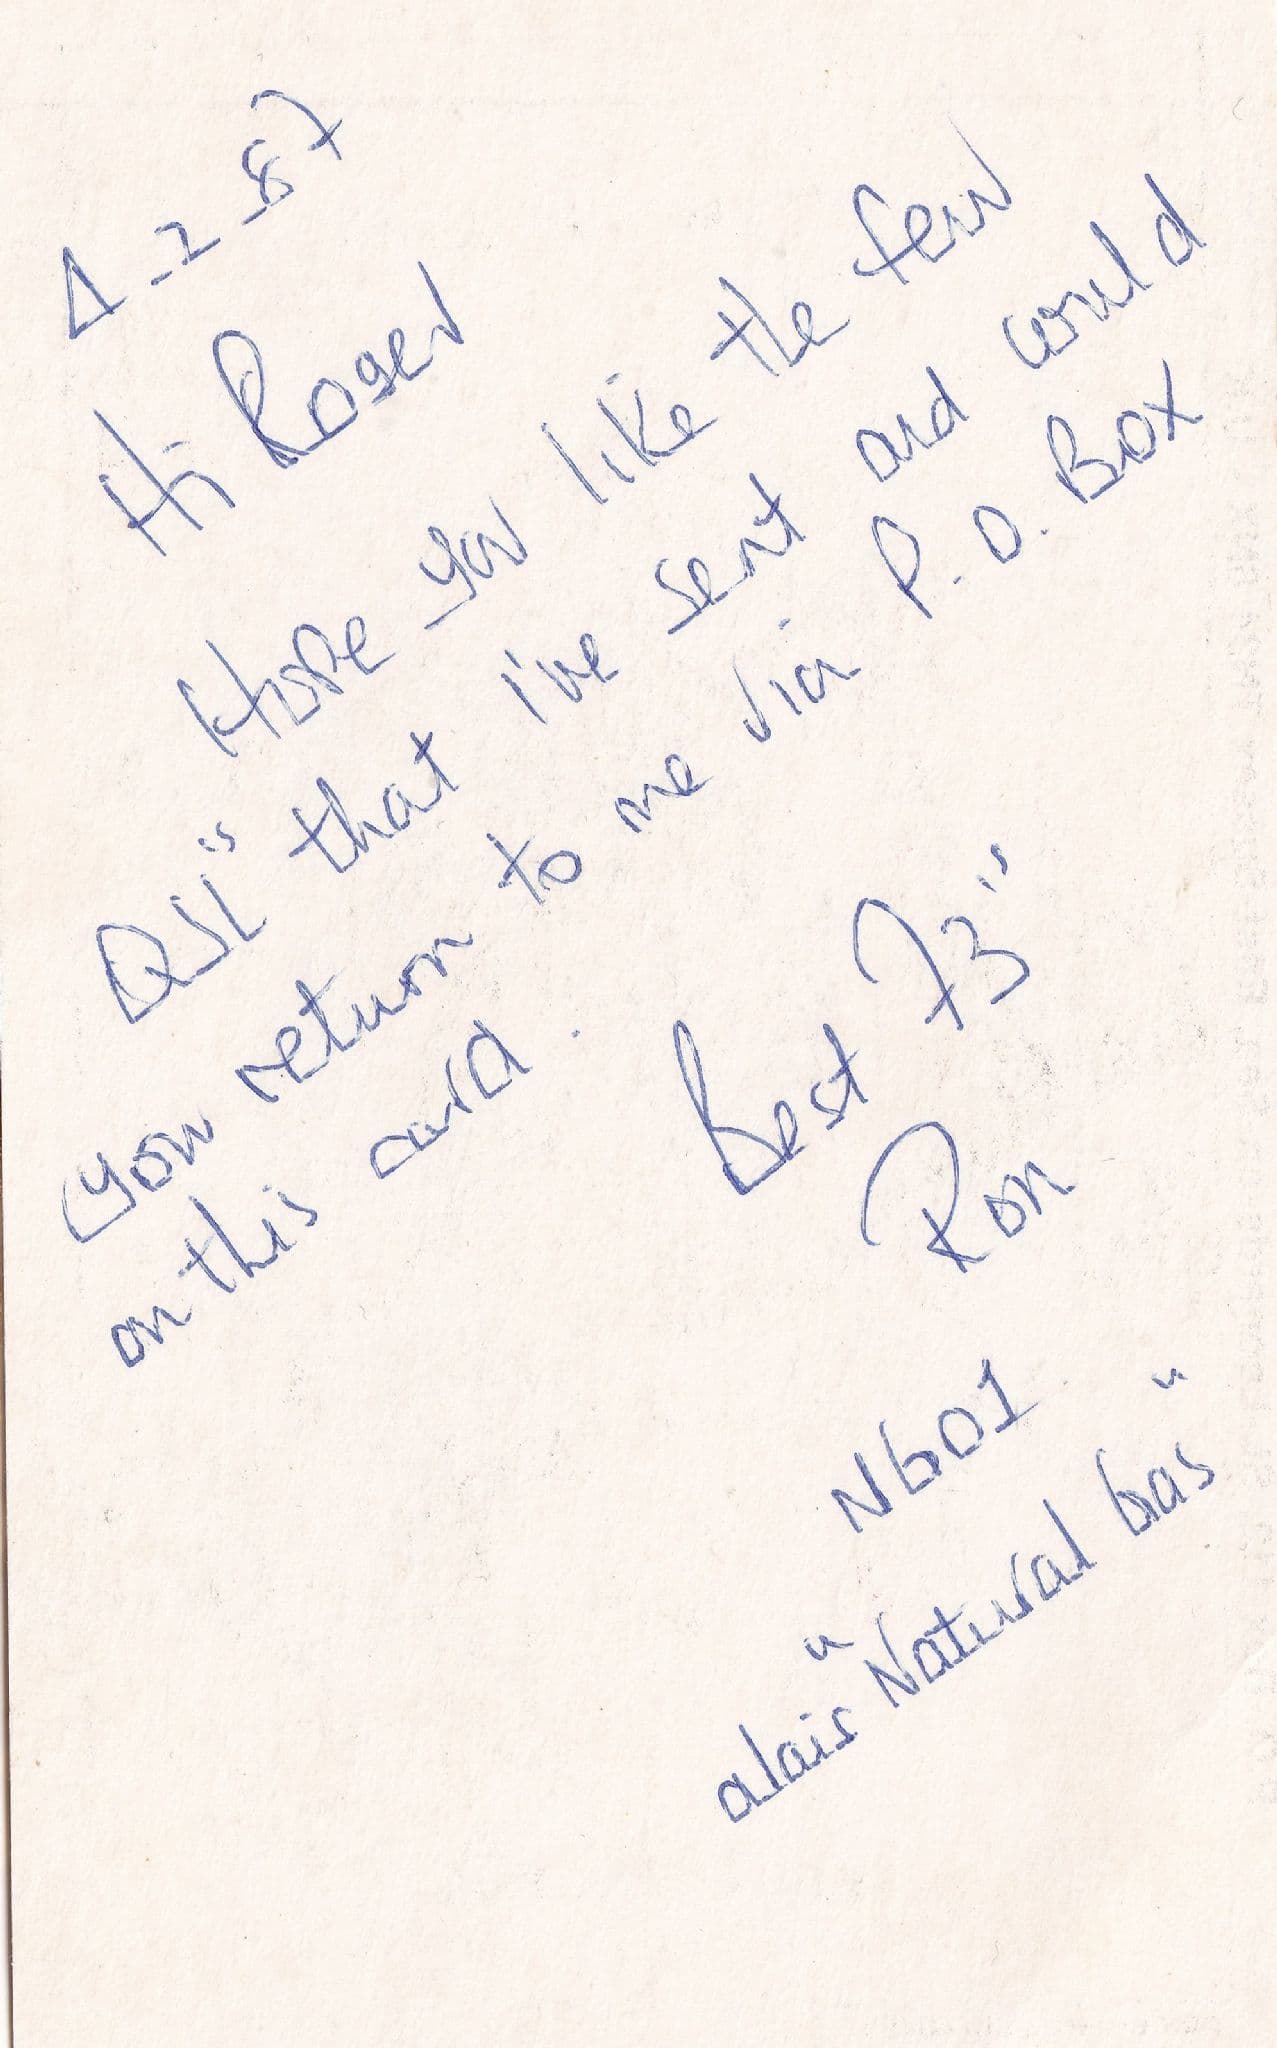 4-2-87
Hi Roger
Hope you like the few
QSL"s that I've sent and would
you return to me via P.O. Box
on this card.
Best 73"s
Ron
N601
alais "Natural Gas"